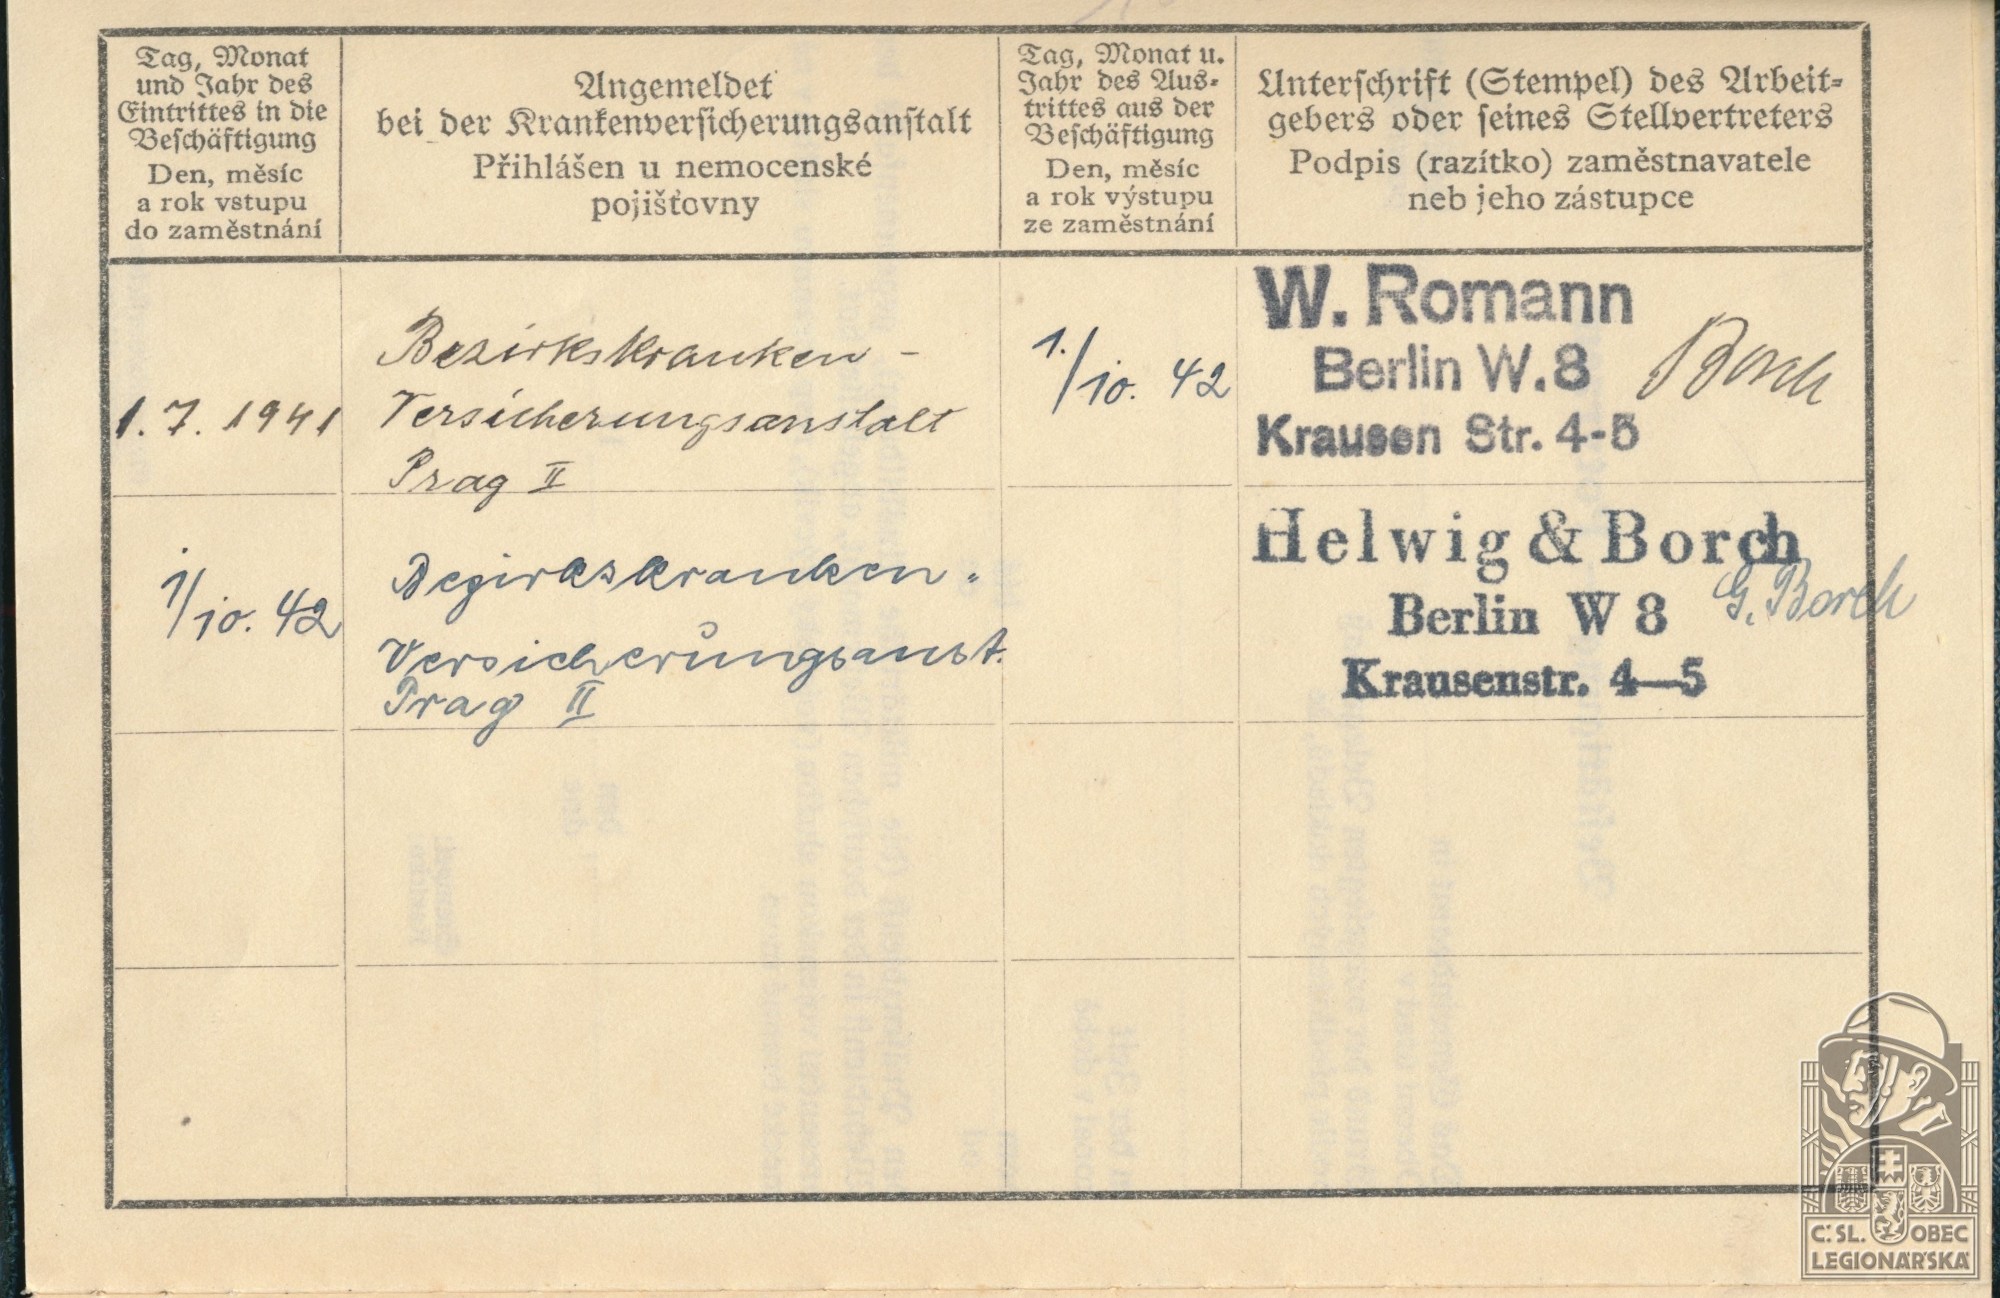 Tag, Monat
und Jahr des
Eintrittes in die
Beschäftigung
Den, měsíc
a rok vstupu
do zaměstnání
Angemeldet
bei der Krankenversicherungsanstalt
Přihlášen u nemocenské
pojišťovny
Tag, Monat u.
Jahr des Aus-
trittes aus der
Beschäftigung
Den, měsíc
a rok výstupu
ze zaměstnání
Unterschrift (Stempel) des Arbeit-
gebers oder seines Stellvertreters
Podpis (razítko) zaměstnavatele
neb jeho zástupce
1. 7. 1941
Bezirkskranken -
Versicherungsanstalt
Prag II
1./10. 42
W. Romann
Berlin W.8
Krausen Str. 4-5
Borch
1/10. 42
Bezirkskranken-
Versicherungsanst.
Prag II
Helwig & Borch
Berlin W 8
Krausenstr. 4—5
G. Borch
Č.SL. OBEC
LEGIONÁŘSKÁ